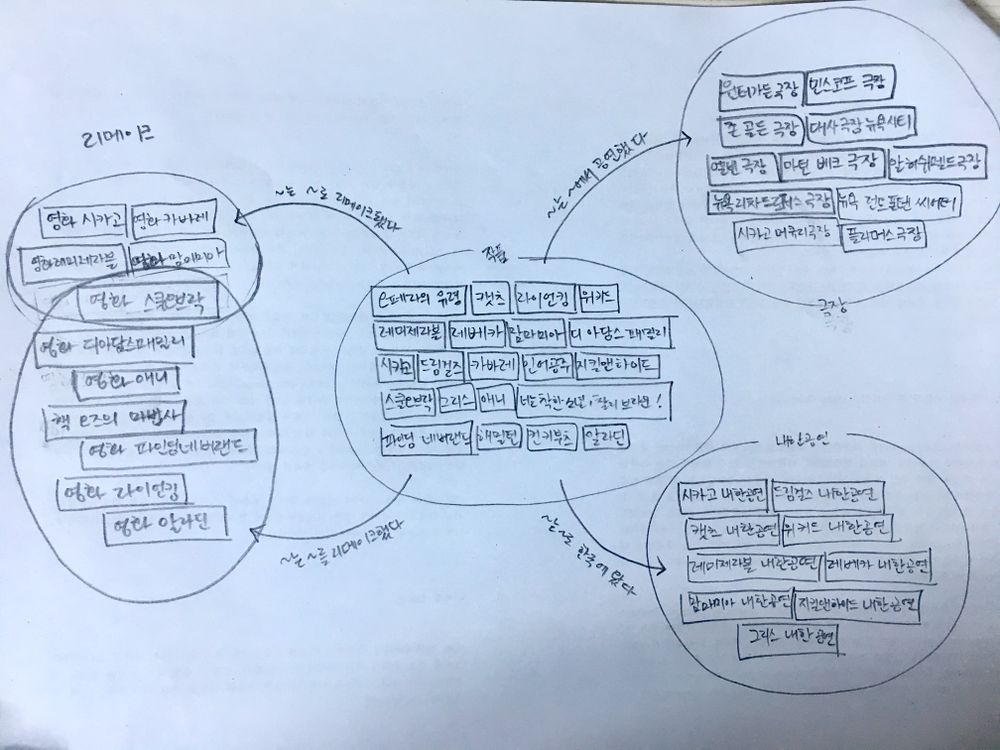 리메이크
영화 시카고 영화 카바레
영화레미제라블 영화 맘마미아
영화 스쿨오브락
영화 디아담스패밀리
영화 애니
책 오즈의 마법사
영화 파인딩네버랜드
영화 라이언킹
영화 알라딘
~는 ~로 리메이크됐다
~는 ~를 리메이크했다
작품
오페라의 유령 캣츠 라이언킹 위키드
레미제라블 레베카 맘마미아 디 아담스 패밀리
시카고 드림걸즈 카바레 인어공주 지킬앤하이드
스쿨오브락 그리스 애니 넌 착한 소년, 찰리 브라운!
파인딩 네버랜드 해밀턴 킨키부츠 알라딘
~는 ~에서 공연했다
윈터가든극장 민스코프 극장
존 골든 극장 대사극장 뉴욕시티
마틴 베크 극장 알 허쉬펠드극장
뉴욕
시카고 머큐리극장 플리머스극장
극장
~는 ~로 한국에 왔다
내한공연
시카고 내한공연 드림걸즈 내한공연
캣츠 내한공연 위키드 내한공연
레미제라블 내한공연 레베카 내한공연
맘마미아 내한공연 지킬앤하이드 내한공연
그리스 내한 공연